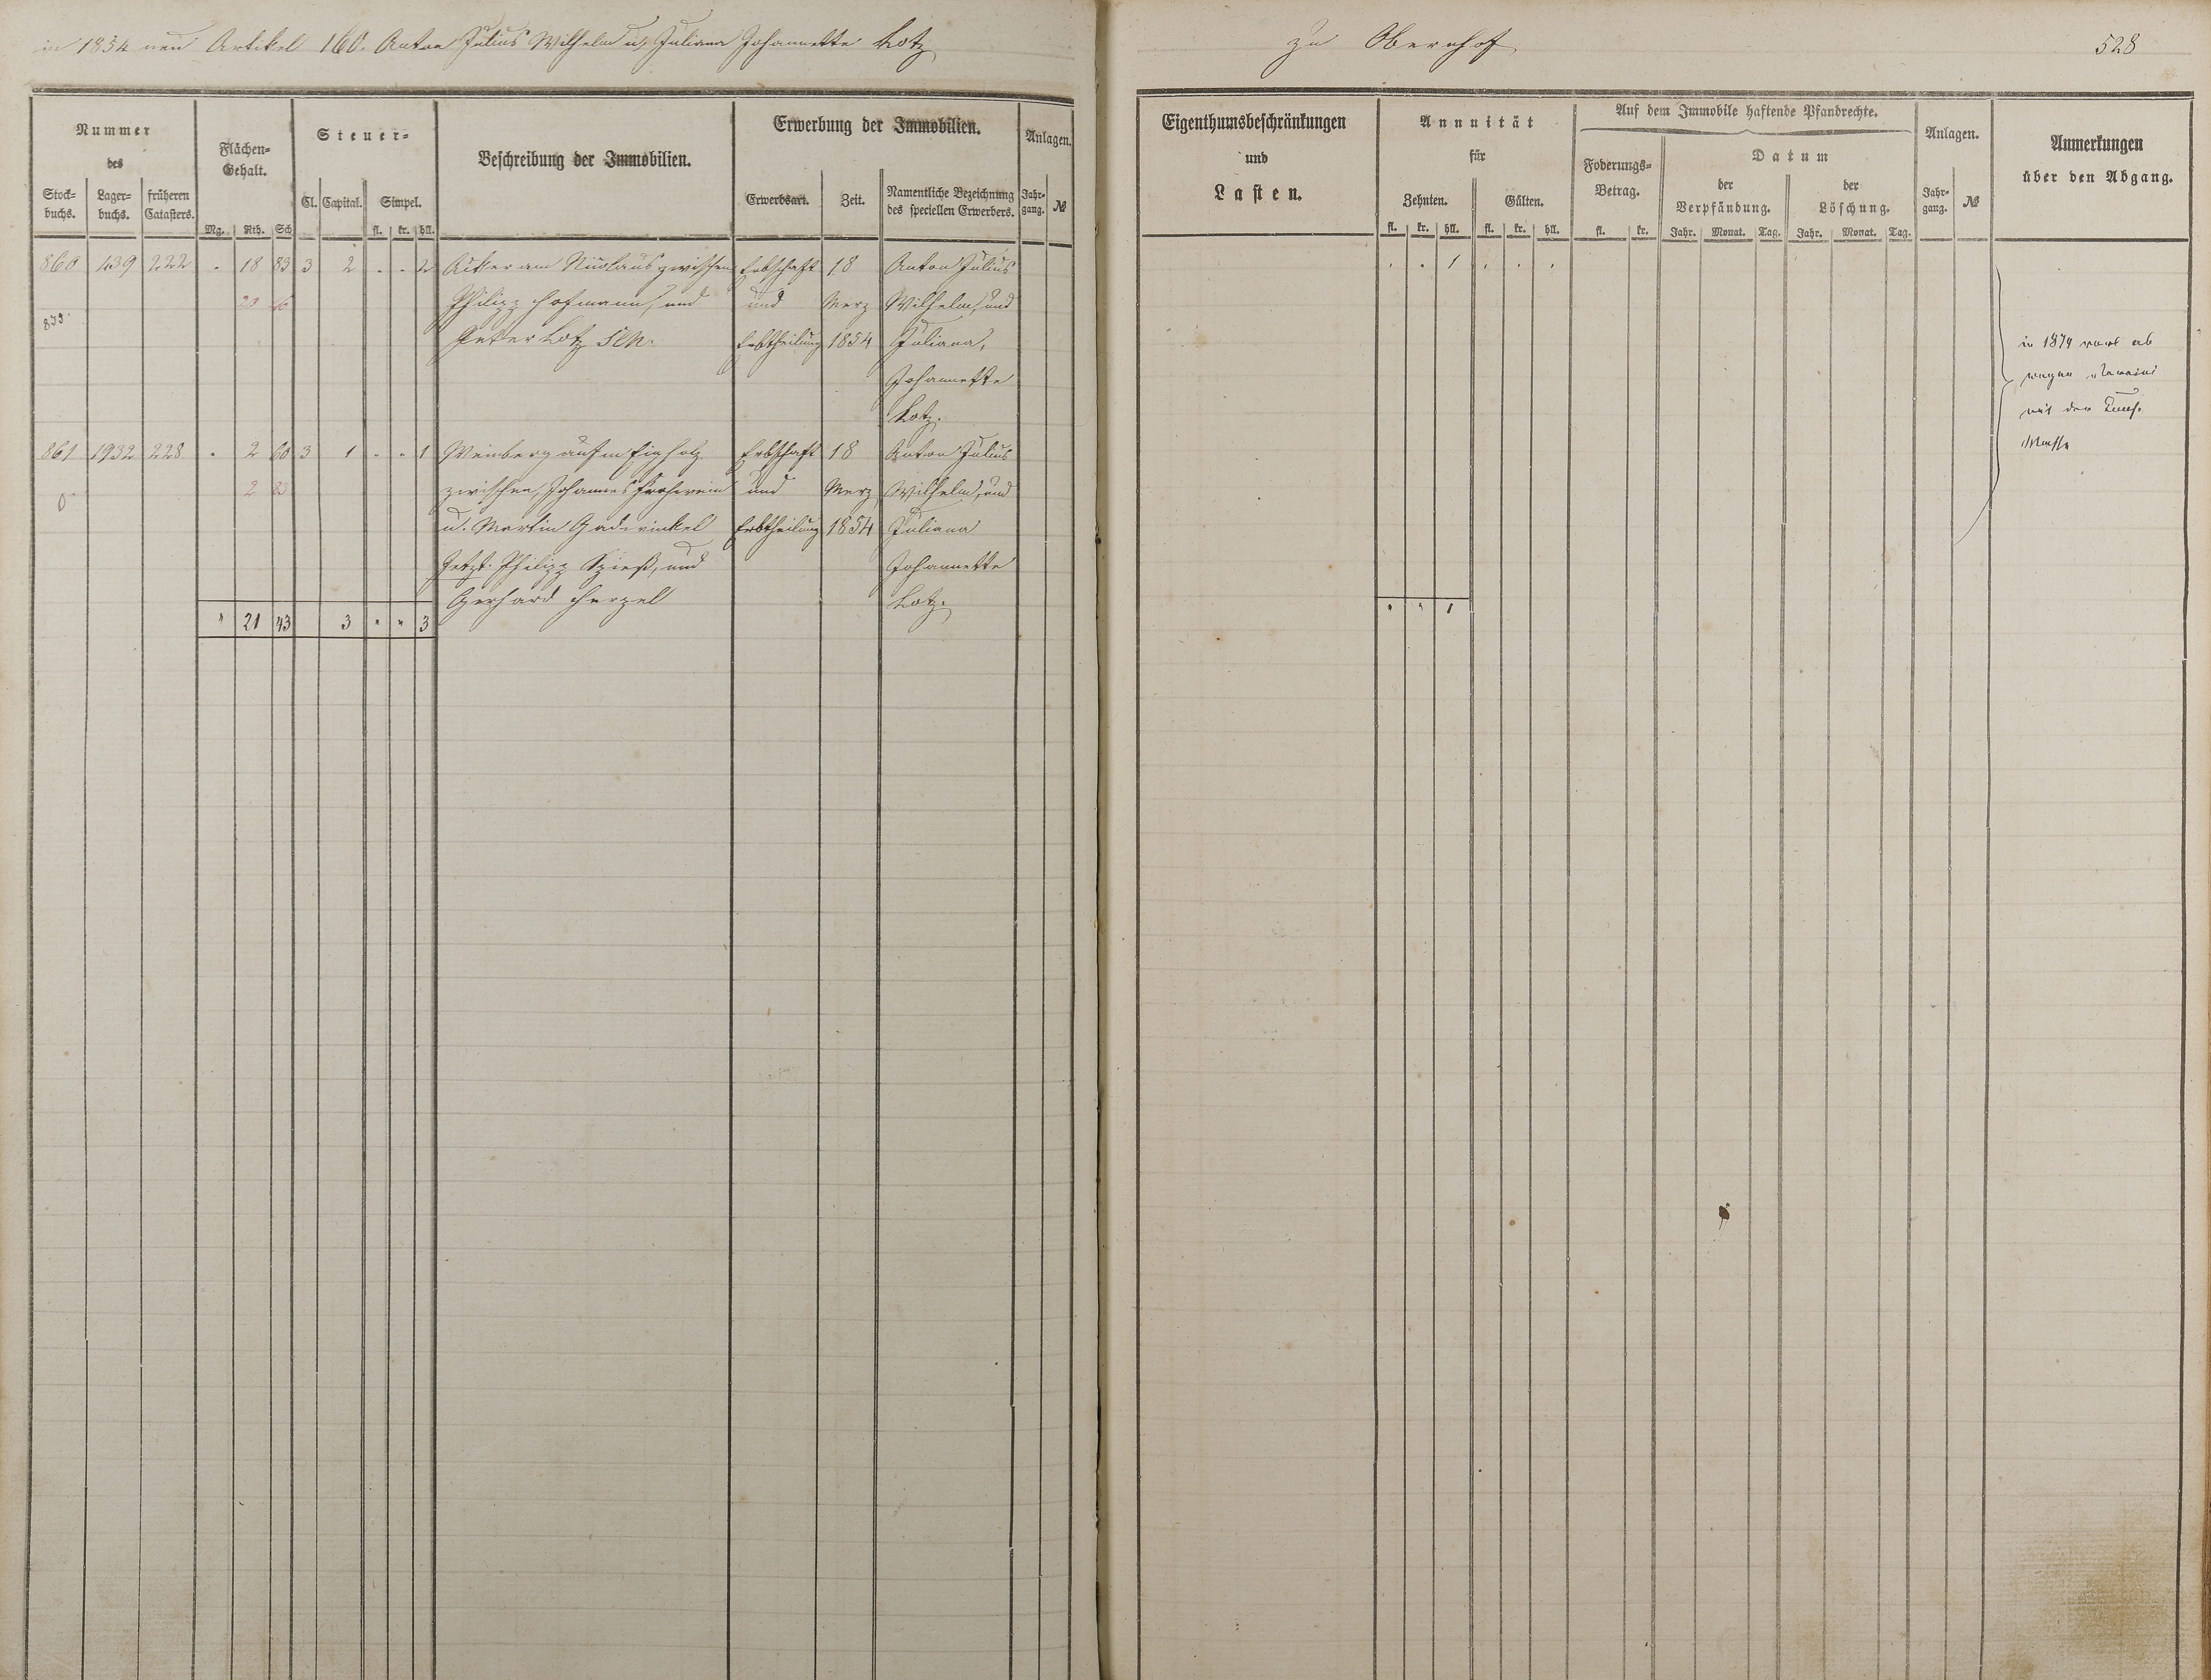 in 1854 neu Artikel 160. Anton Julius Wilhelm u. Juliana Johannette Lotz
zu Obernhof
528
Nummer
des
Stock-
buchs.
Lager-
buchs.
früheren
Catasters.
Flächen-
Gehalt.
Mg. Rth. Sch
Steuer-
Cl. Capital. Simpel.
fl. kr. hll.
Beschreibung der Immobilien.
Erwerbung der Immobilien.
Erwerbsart. Zeit.
Namentliche Bezeichnung
des speciellen Erwerbers.
Anlagen.
Jahr-
gang. №
Eigenthumsbeschränkungen
und
Lasten.
Annuität
für
Zehnten. Gülten.
fl. kr. hll. fl. kr. hll.
Auf dem Immobile haftende Pfandrechte.
Foderungs-
Betrag.
fl. kr.
Datum
der
Verpfändung.
der
Löschung.
Jahr. Monat. Tag. Jahr. Monat. Tag.
Anlagen.
Jahr-
gang. №
Anmerkungen
über den Abgang.
860 439 222 . 18 83 3 2 . . 2 Acker am Nicolaus zwischen Erbschaft 18 Anton Julius . . 1 . . .
20 Philipp Hofmann, und und Merz Wilhelm, und
Peter Lotz sen. Erbtheilung 1854 Juliana,
Johannette
Lotz.
in 1874 ab
wegen
mit der
Masse
861 1932 228 . 2 60 3 1 . . 1 Weinberg auf'm Erbschaft 18 Anton Julius
2 83 zwischen Johannes und Merz Wilhelm, und
0 u. Martin Erbtheilung 1854 Juliana
jetzt Philipp Spieß, und Johannette
Gerhard Herzel Lotz.
" 21 43 3 " " 3
" " 1